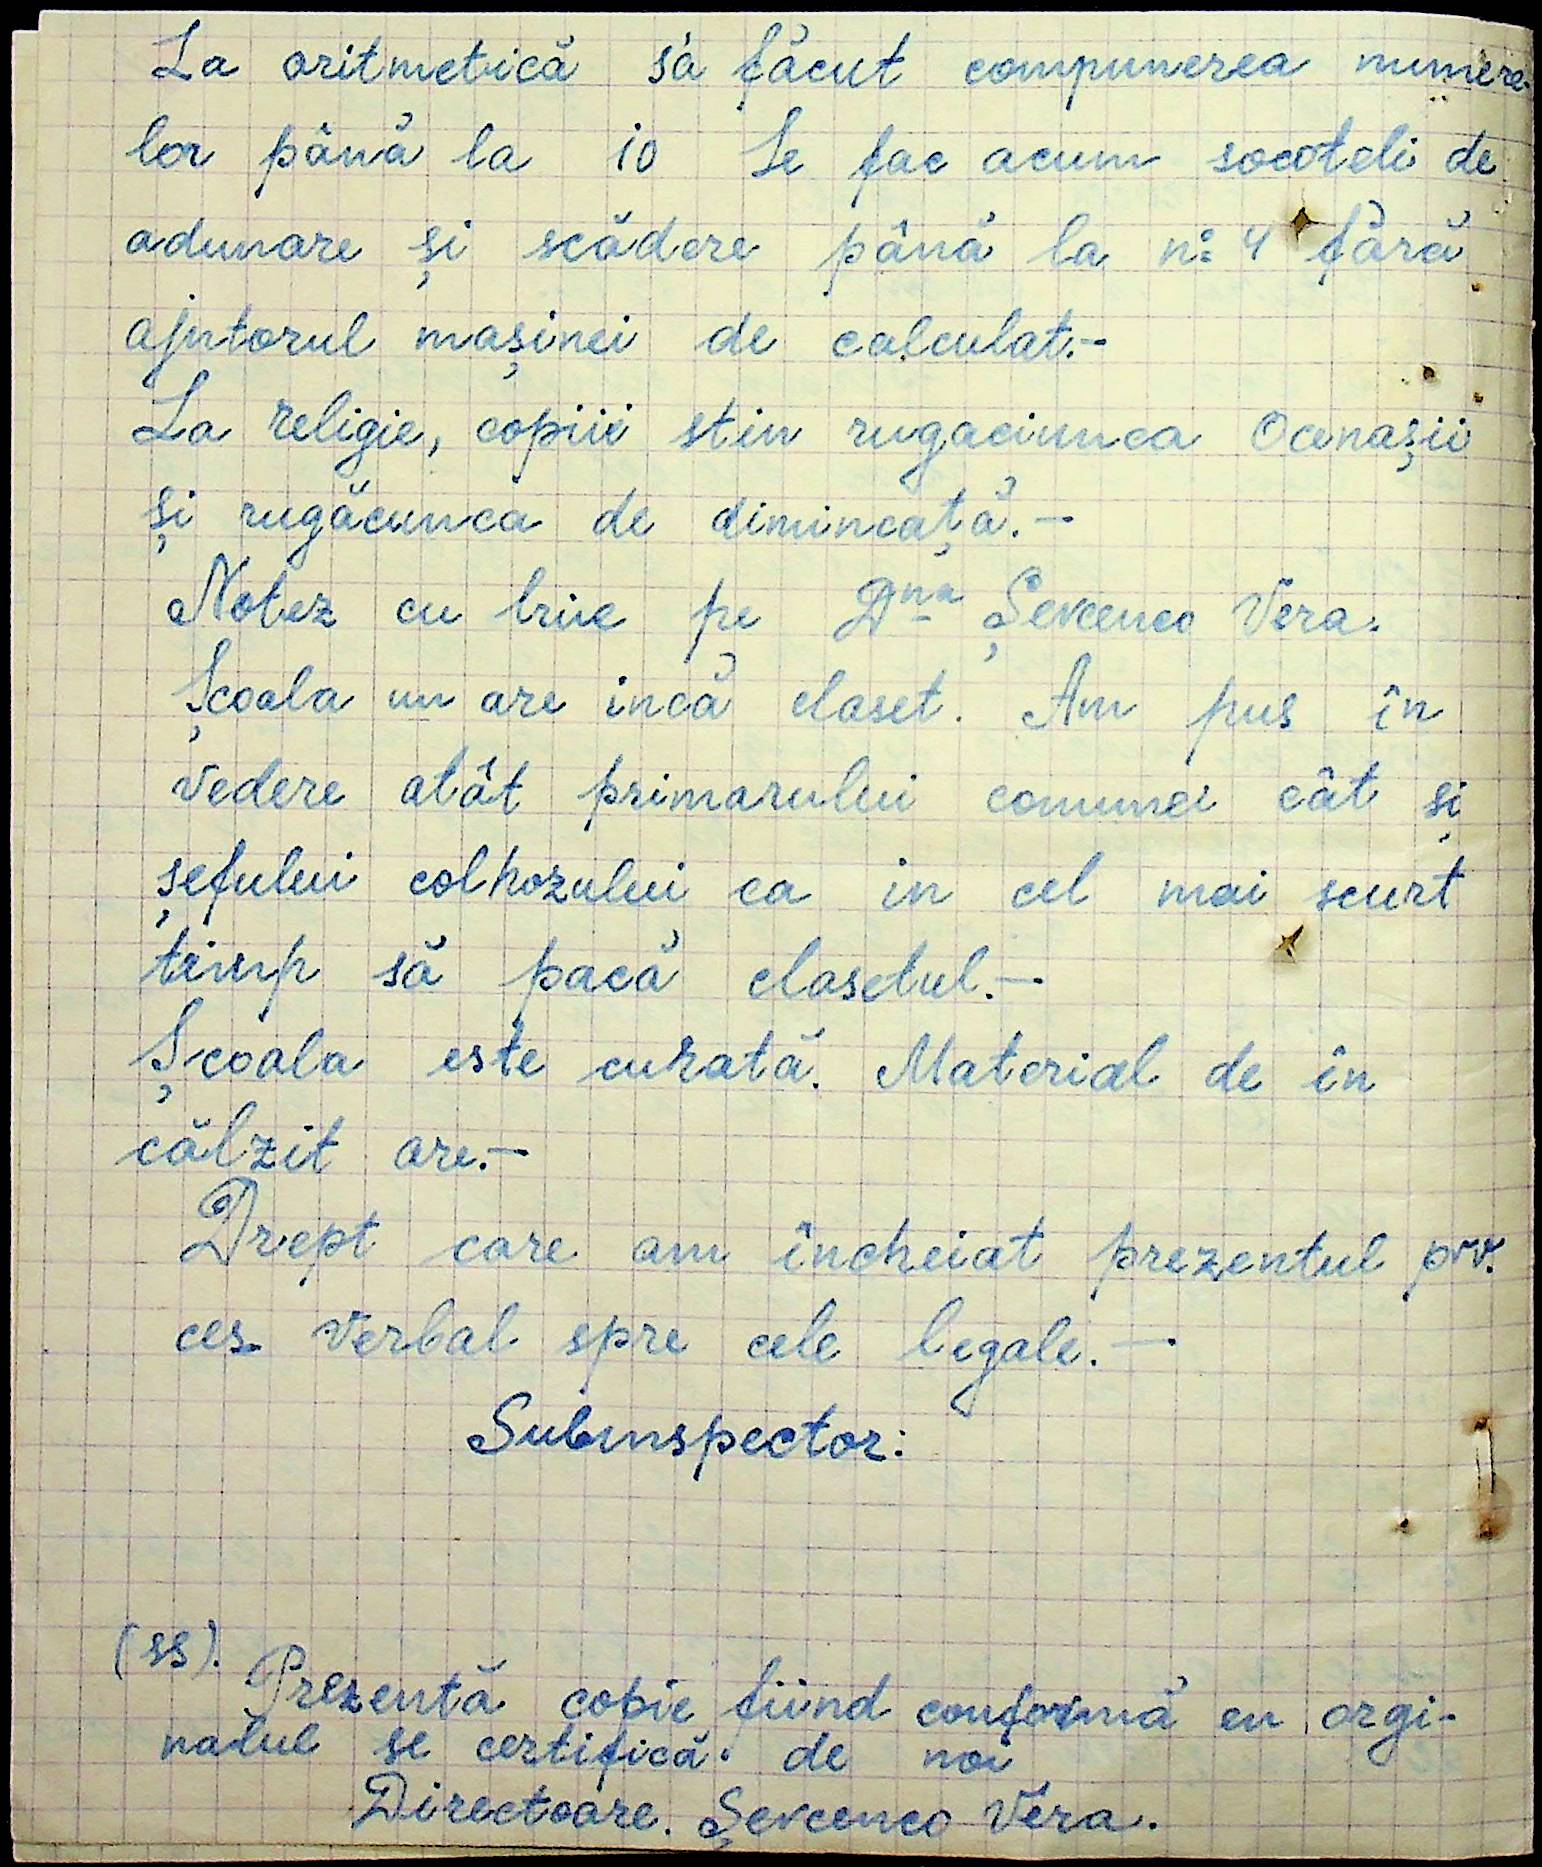 La aritmetică s'a făcut compunerea numere-
lor până la 10 Se fac acum socoteli de
adunare și scădere până la no: 4 fără
ajutorul mașinei de calculat.-
La religie, copiii stiu rugaciunea Ocenașii
și rugăcunea de dimineață.-
Notez cu bine pe Dna Șevcenco Vera.
Școala nu are incă closet. Am pus în
vedere atât primarului comunei cât și
șefului colhozului ca in cel mai scurt
timp să pacă closetul.-
Școala este curată. Material de în
călzit are.-
Drept care am încheiat prezentul pro.
ces verbal spre cele legale.-
Subinspector:
(ss).
Prezentă copie fiind conformă cu orgi-
nalul se certifică. de noi
Directoare. Șevcenco Vera.